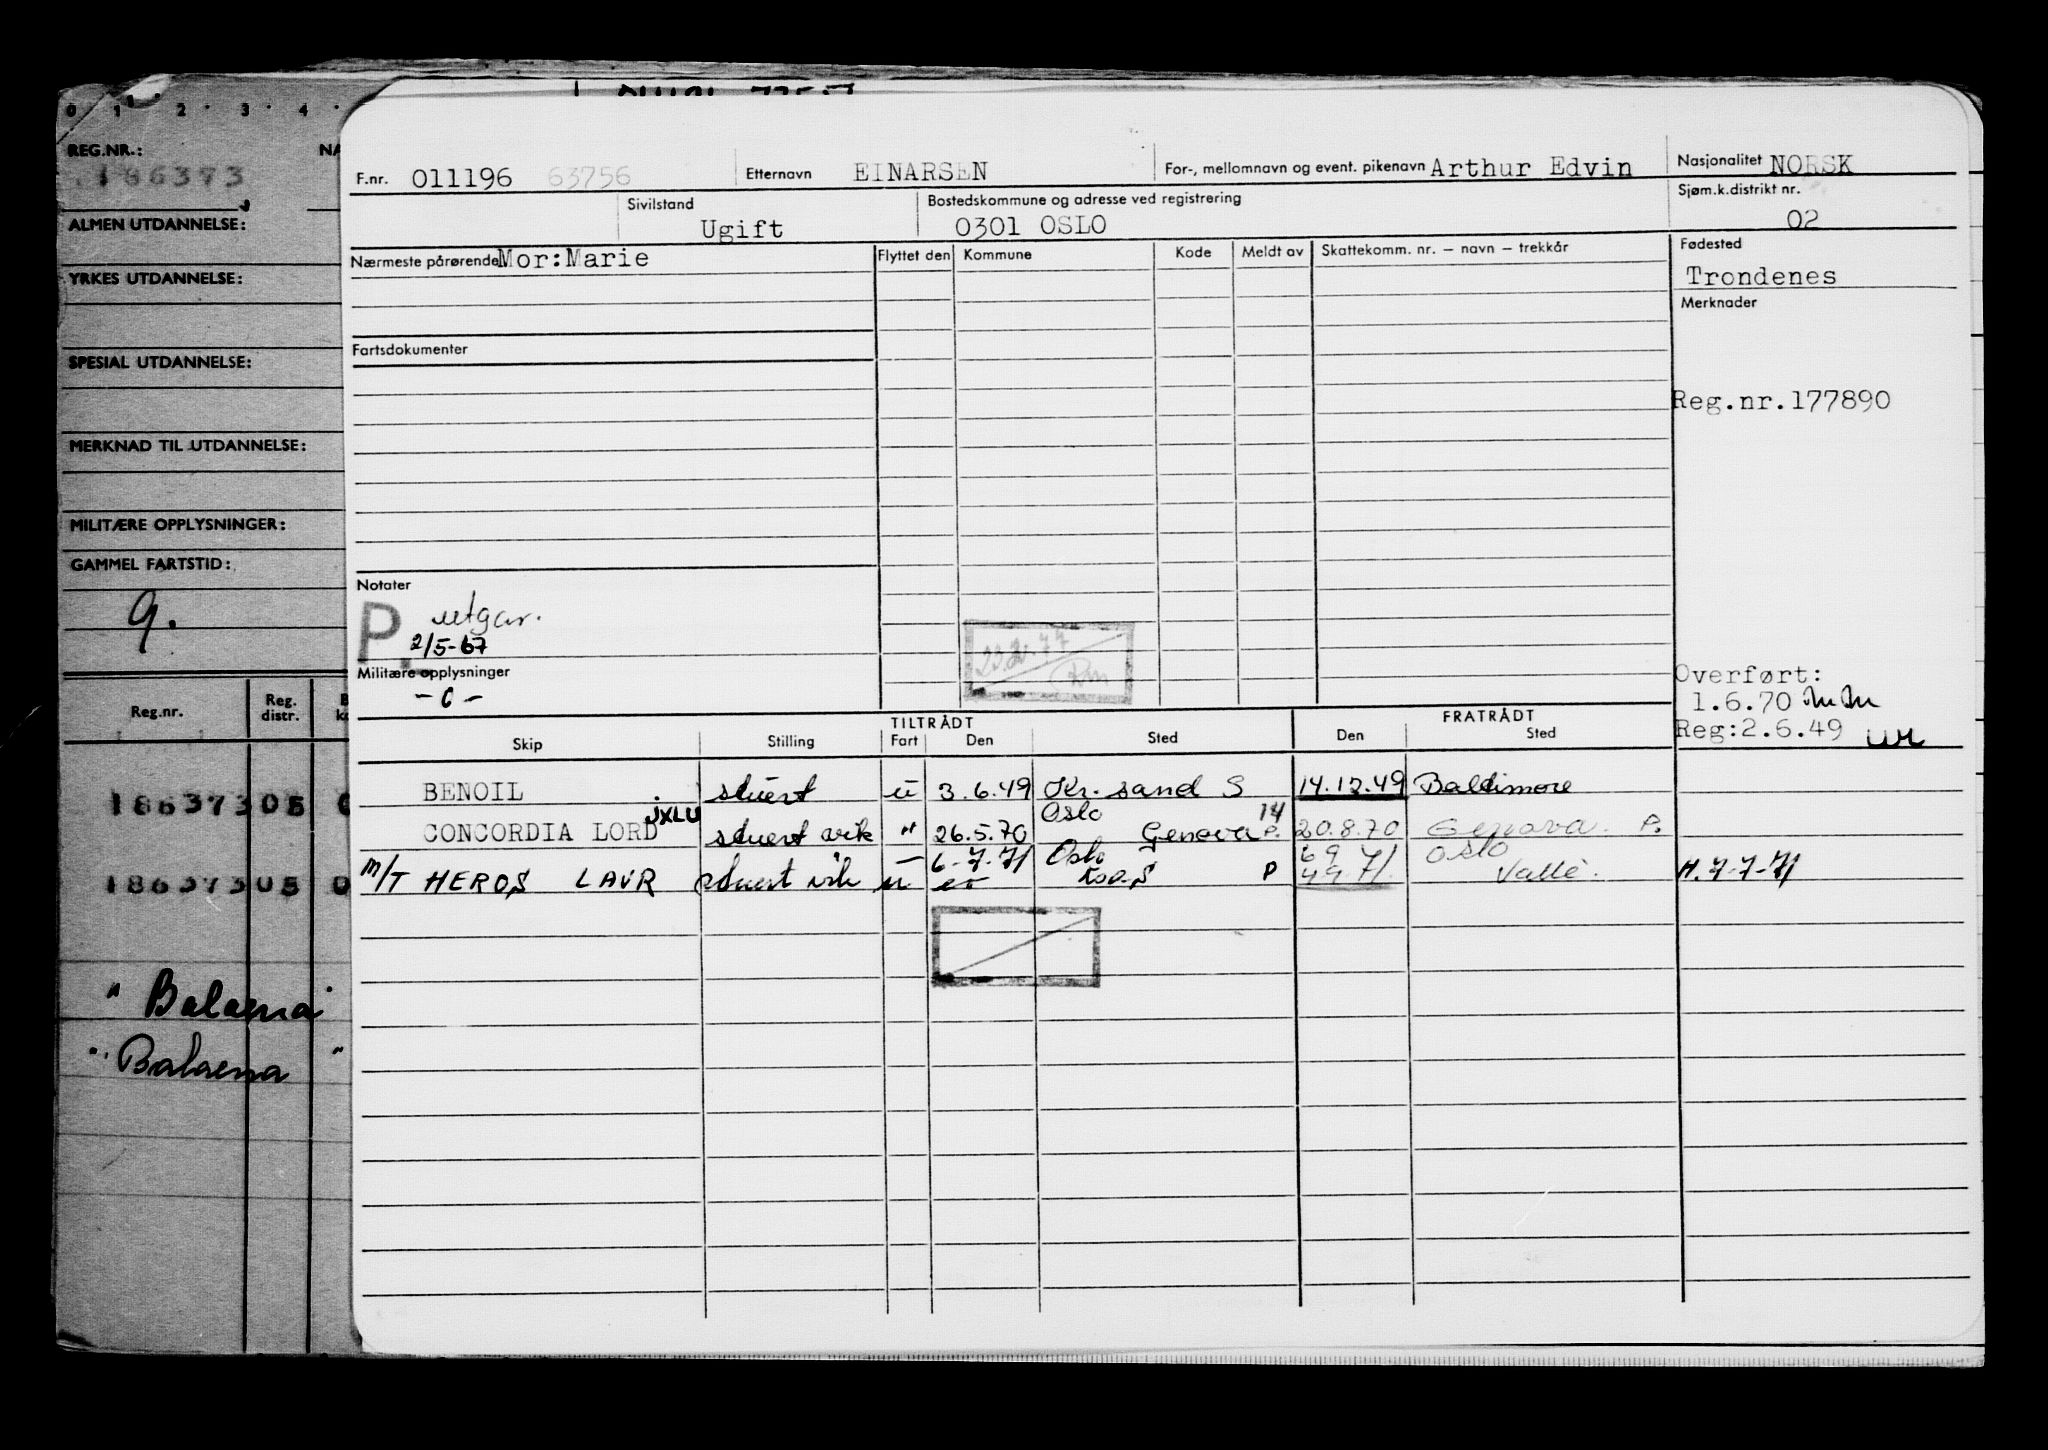 0 1 2 3 4
REG.NR.:
186373
ALMEN UTDANNELSE:
YRKES UTDANNELSE:
SPESIAL UTDANNELSE:
MERKNAD TIL UTDANNELSE:
MILITÆRE OPPLYSNINGER:
GAMMEL FARTSTID:
9.
Reg.nr. Reg. distr.
18637305 0
18637305 0
"Balaena"
"Balaena"
F.nr. 011196 63756 Etternavn EINARSEN For-, mellomnavn og event. pikenavn Arthur Edvin Nasjonalitet NORSK
Sivilstand Ugift Bostedskommune og adresse ved registrering 0301 OSLO Sjøm.k.distrikt nr. 02
Nærmeste pårørende Mor:Marie Flyttet den Kommune Kode Meldt av Skattekomm. nr. – navn – trekkår Fødested
Trondenes
Merknader
Fartsdokumenter
Reg.nr.177890
Notater
P. utgår.
2/5-67
Militære opplysninger
-0-
Overført:
1.6.70
Reg:2.6.49
TILTRÅDT FRATRÅDT
Skip Stilling Fart Den Sted Den Sted
BENOIL stuert u 3.6.49 Kr.sand S 14.12.49 Baltimore
CONCORDIA LORD JXLU stuert vik " 26.5.70 Oslo Genova P. 14 20.8.70 Genova. P.
M/T HEROS LAVR stuert vik u 6-7-71 Oslo P 6 9 71. Oslo Valle. H.7-7-71